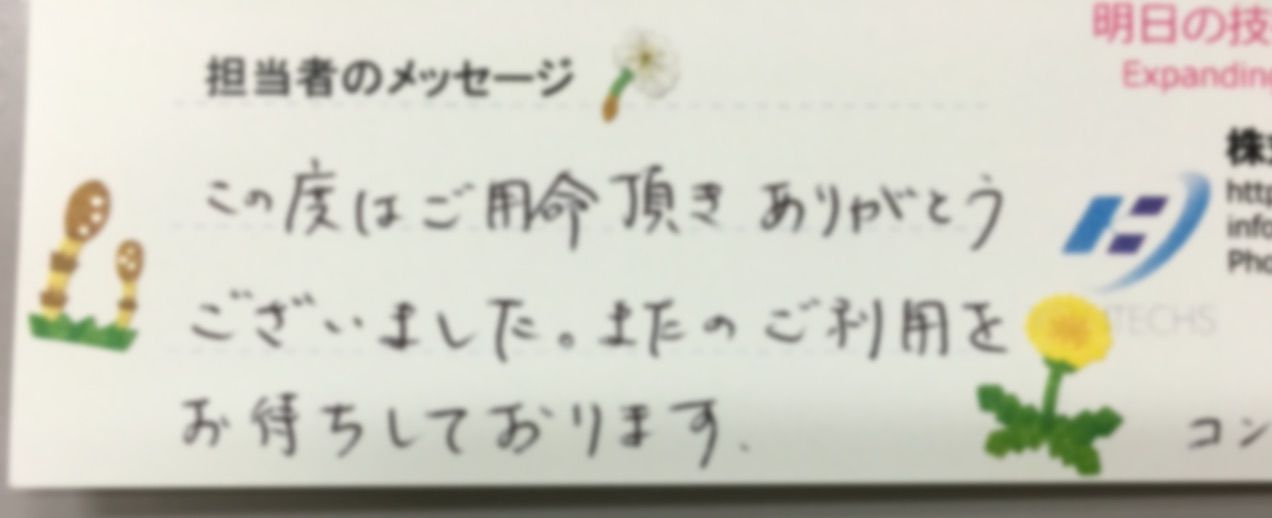 担当者のメッセージ
この度はご用命頂き ありがとう
ございました。またのご利用を
お待ちしております.
明日の技
Expanding
株式
http
info
Pho
TECHS
コン